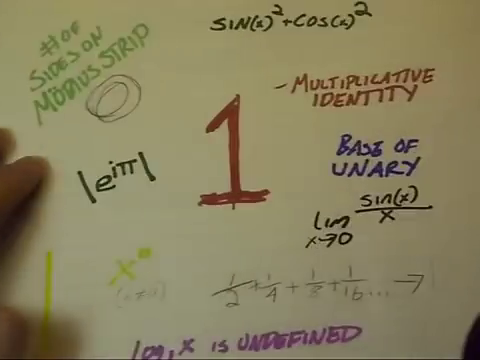 SIN(x)²+COS(x)²
# OF
SIDES ON
MÖBIUS STRIP
- MULTIPLICATIVE
IDENTITY
1
BASE OF
UNARY
|e^iπ|
lim x→0 sin(x)/x
x⁰
(x≠0)
1/2 + 1/4 + 1/8 + 1/16 ... →
log₁x IS UNDEFINED